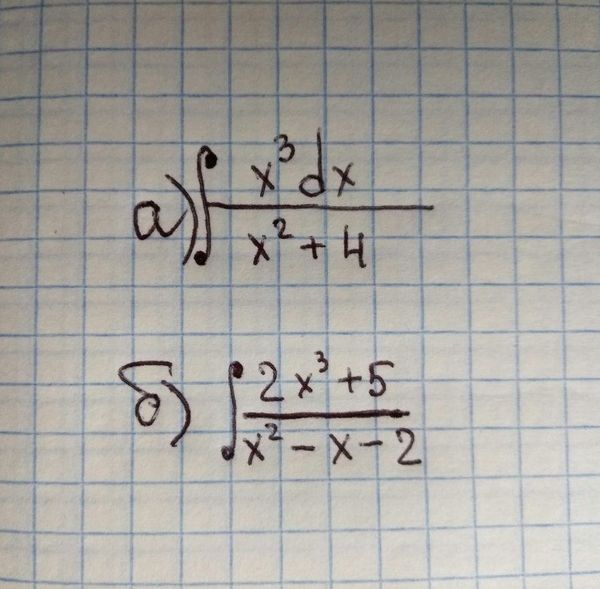 а) ∫ x³dx / x² + 4
б) ∫ 2x³ + 5 / x² - x - 2